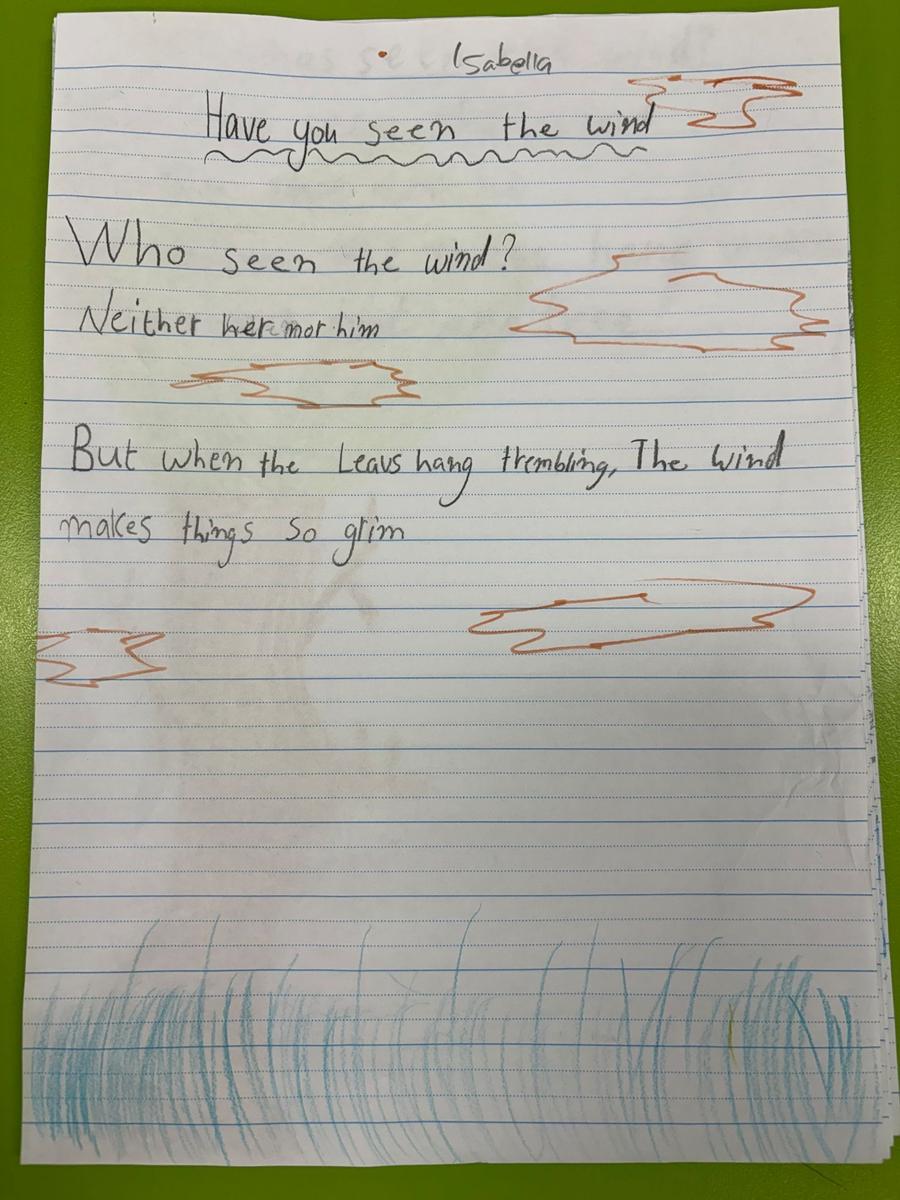 Isabella
Have you seen the wind
Who seen the wind?
Neither her mor him
But when the Leavs hang trembling, The wind
makes things so grim